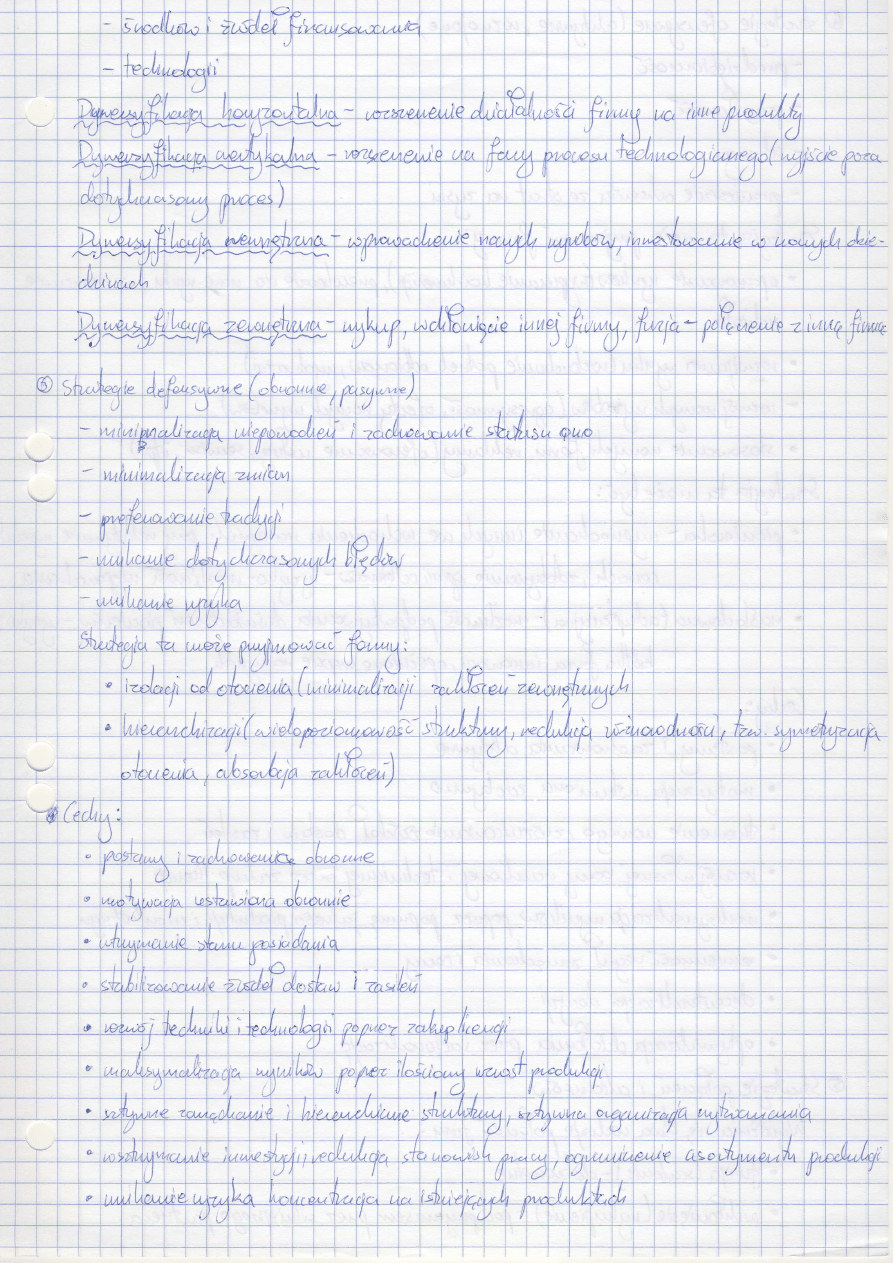 - środków i źródeł finansowania
- technologii
Dywersyfikacja horyzontalna - rozszerzenie działalności firmy na inne produkty
Dywersyfikacja wertykalna - rozszerzenie na fazy procesu technologicznego (wyjście poza
dotychczasowy proces)
Dywersyfikacja wewnętrzna - wprowadzenie nowych wyrobów, inwestowanie w nowych dzie-
dzinach
Dywersyfikacja zewnętrzna - wykup, wchłonięcie innej firmy, fuzja - połączenie z inną firmą
Strategie defensywne (obronne, pasywne)
- minimalizacja niepowodzeń i zachowanie statusu quo
- minimalizacja zmian
- preferowanie tradycji
- unikanie dotychczasowych błędów
- unikanie ryzyka
Strategia ta może przyjmować formy:
• izolacji od otoczenia (minimalizacji zakłóceń zewnętrznych
• hierarchizacji (wielopoziomowość struktury, redukcja różnorodności, tzw. symetryzacja
otoczenia, absorbcja zakłóceń)
Cechy:
• postawy i zachowania obronne
• motywacja ustawiona obronnie
• utrzymanie stanu posiadania
• stabilizowanie źródeł dostaw i zasileń
• rozwój techniki i technologii poprzez zakup licencji
• maksymalizacja wyników poprzez ilościowy wzrost produkcji
• sztywne zarządzanie i hierarchiczne struktury, sztywna organizacja wytwarzania
• wstrzymanie inwestycji, redukcja stanowisk pracy, ograniczenie asortymentu produkcji
• unikanie ryzyka koncentracja na istniejących produktach